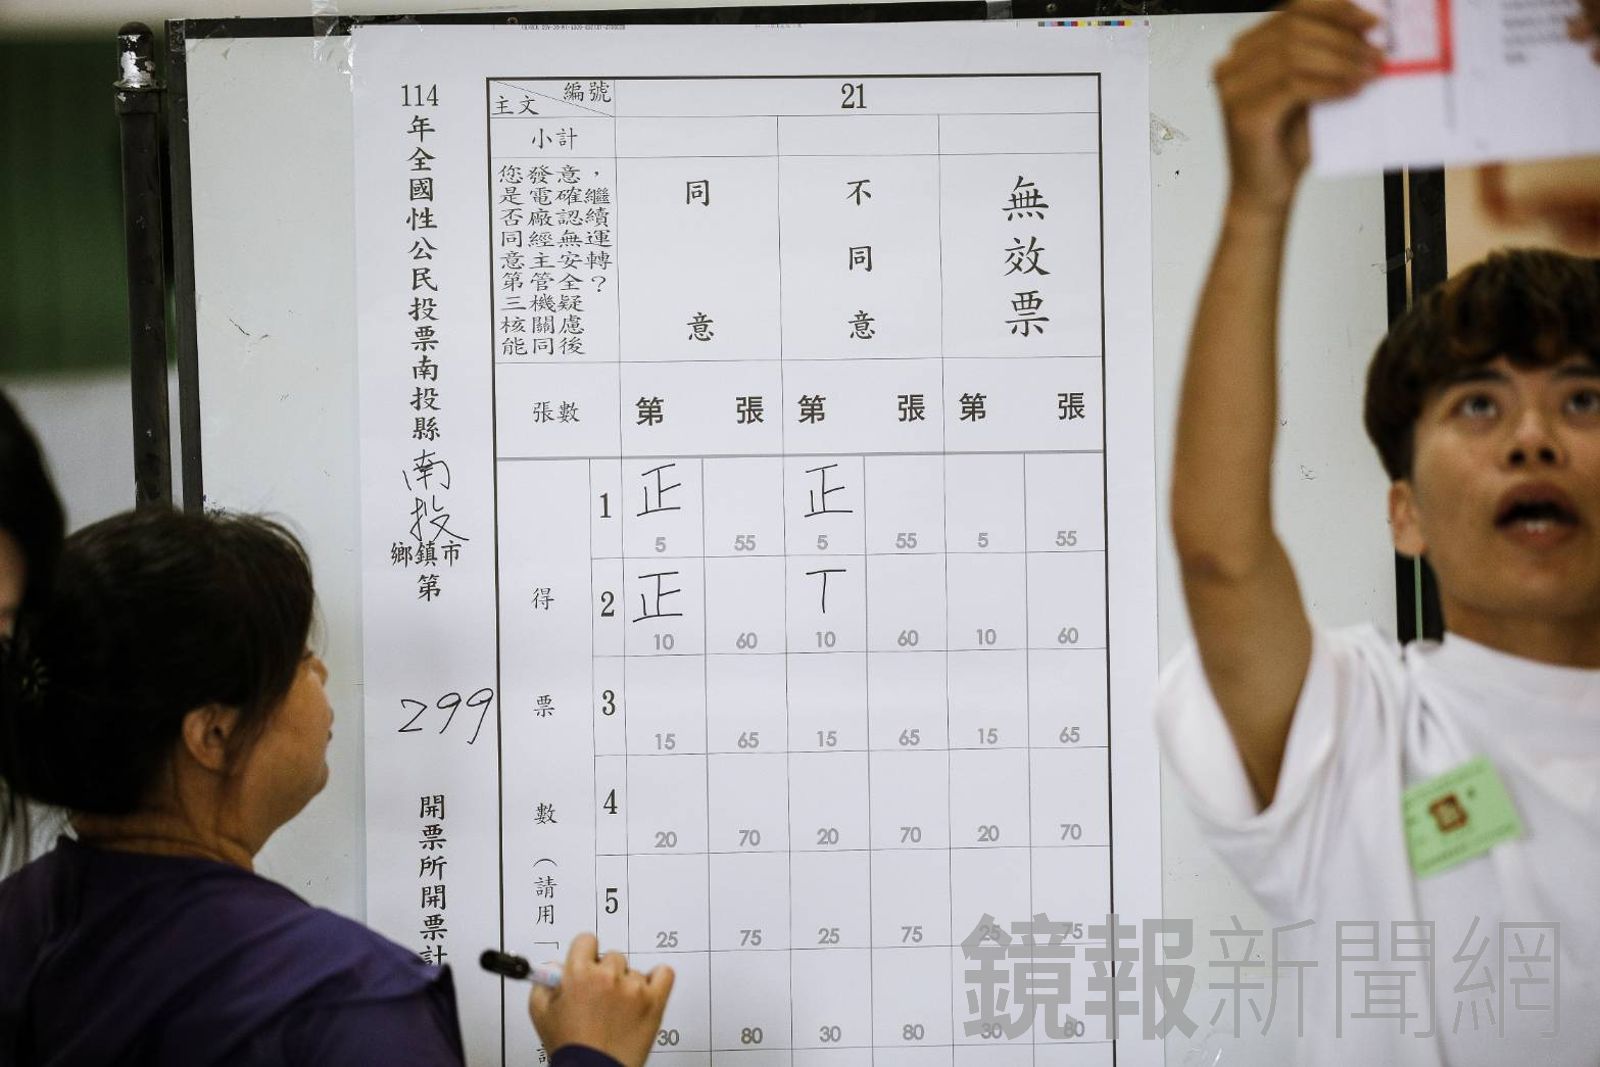 114年全國性公民投票南投縣南投鄉鎮市第299開票所開票計
編號
主文
21
小計
您是否同意第三核能
發電廠經主管機關同
意確認無安全疑慮後
，繼續運轉？
同意
不同意
無效票
張數
第 張 第 張 第 張
得票數（請用「
1
正 正
5 55 5 55 5 55
2
正 丅
10 60 10 60 10 60
3
15 65 15 65 15 65
4
20 70 20 70 20 70
5
25 75 25 75 25 75
30 80 30 80 30 80
鏡報新聞網